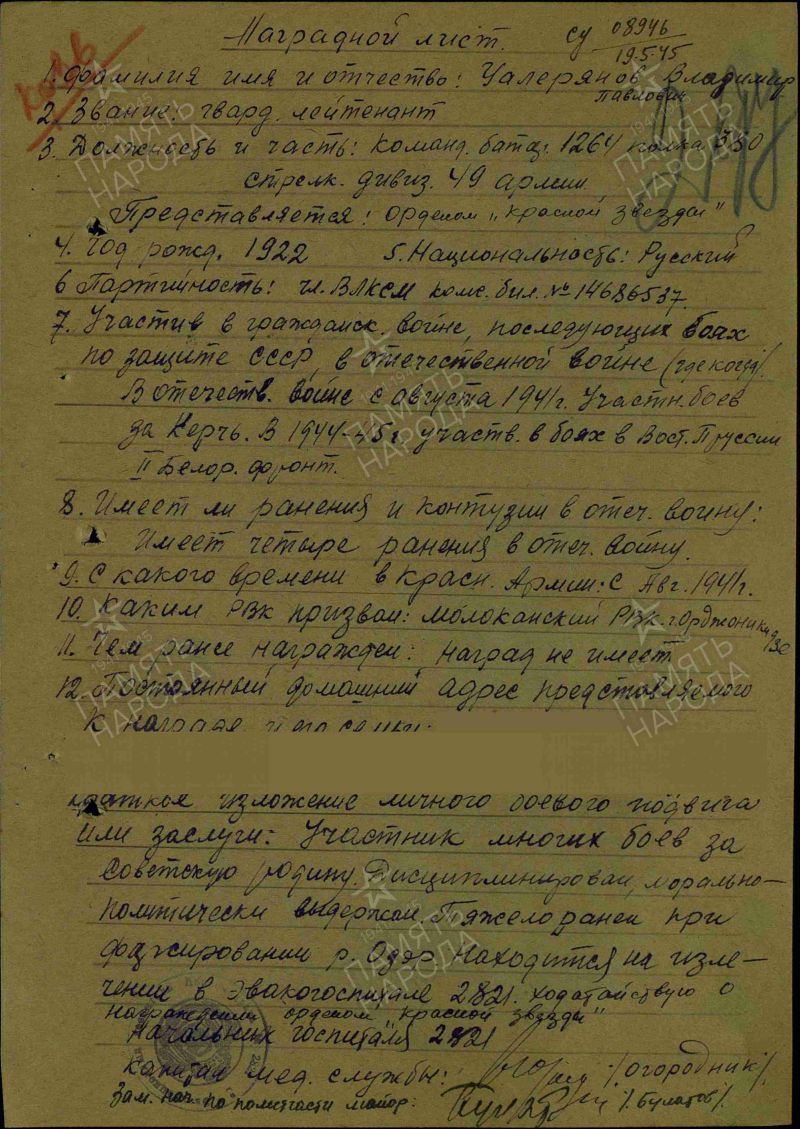 Наградной лист.
су 08946
19.5.45
1. Фамилия имя и отчество: Уалерянов Владимир
Павлович
2. Звание: гвард. лейтенант
3. Должность и часть: Команд. батал. 1264 полка 380
стрелк. дивиз. 49 армии
Представляется: орденом "Красной звезды"
4. Год рожд. 1922 5. Национальность: Русский
6 Партийность: чл. ВЛКСМ комс. бил. № 14686537.
7. Участив в гражданск. войне, последующих боях
по защите СССР, в отечественной войне (где когда).
В отечеств. войне с августа 1941г. Участн. боев
за Керчь. В 1944-45 г участв. в боях в Вост. Пруссии
II Белор. фронт.
8. Имеет ли ранения и контузии в отеч. войну:
Имеет четыре ранения в отеч. войну.
9. С какого времени в Красн. Армии: С Авг. 1941г.
10. Каким РВК призван: Молоканский РВК. г. Орджоникидзе
11. Чем ранее награжден: наград не имеет
12. Постоянный домашний адрес представляемого
к награде
краткое изложение личного боевого подвига
или заслуги: Участник многих боев за
Советскую родину. Дисциплинирован, морально-
политически выдержан. Тяжело ранен при
форсировании р. Одер. Находится на изле-
чении в эвакогоспитале 2821. Ходатайствую о
награждении орденом "Красной звезды"
Начальник госпиталя 2821
капитан мед. службы: /Огородник/.
Зам. нач. по политчасти майор: /Булатов/.
ПАМЯТЬ НАРОДА